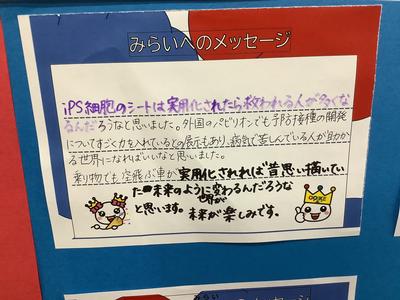 みらいへのメッセージ
iPS細胞のシートは実用化されたら救われる人が多くな
るんだろうなと思いました。外国のパビリオンでも予防接種の開発
についてすごく力を入れているとの展示もあり、病気で苦しんでいる人が助か
る世界になればいいなと思いました。
乗り物でも空飛ぶ車が実用化されれば昔思い描いてい
た未来のように世界が変わるんだろうな
と思います。未来が楽しみです。
みらい
へのメッセージ